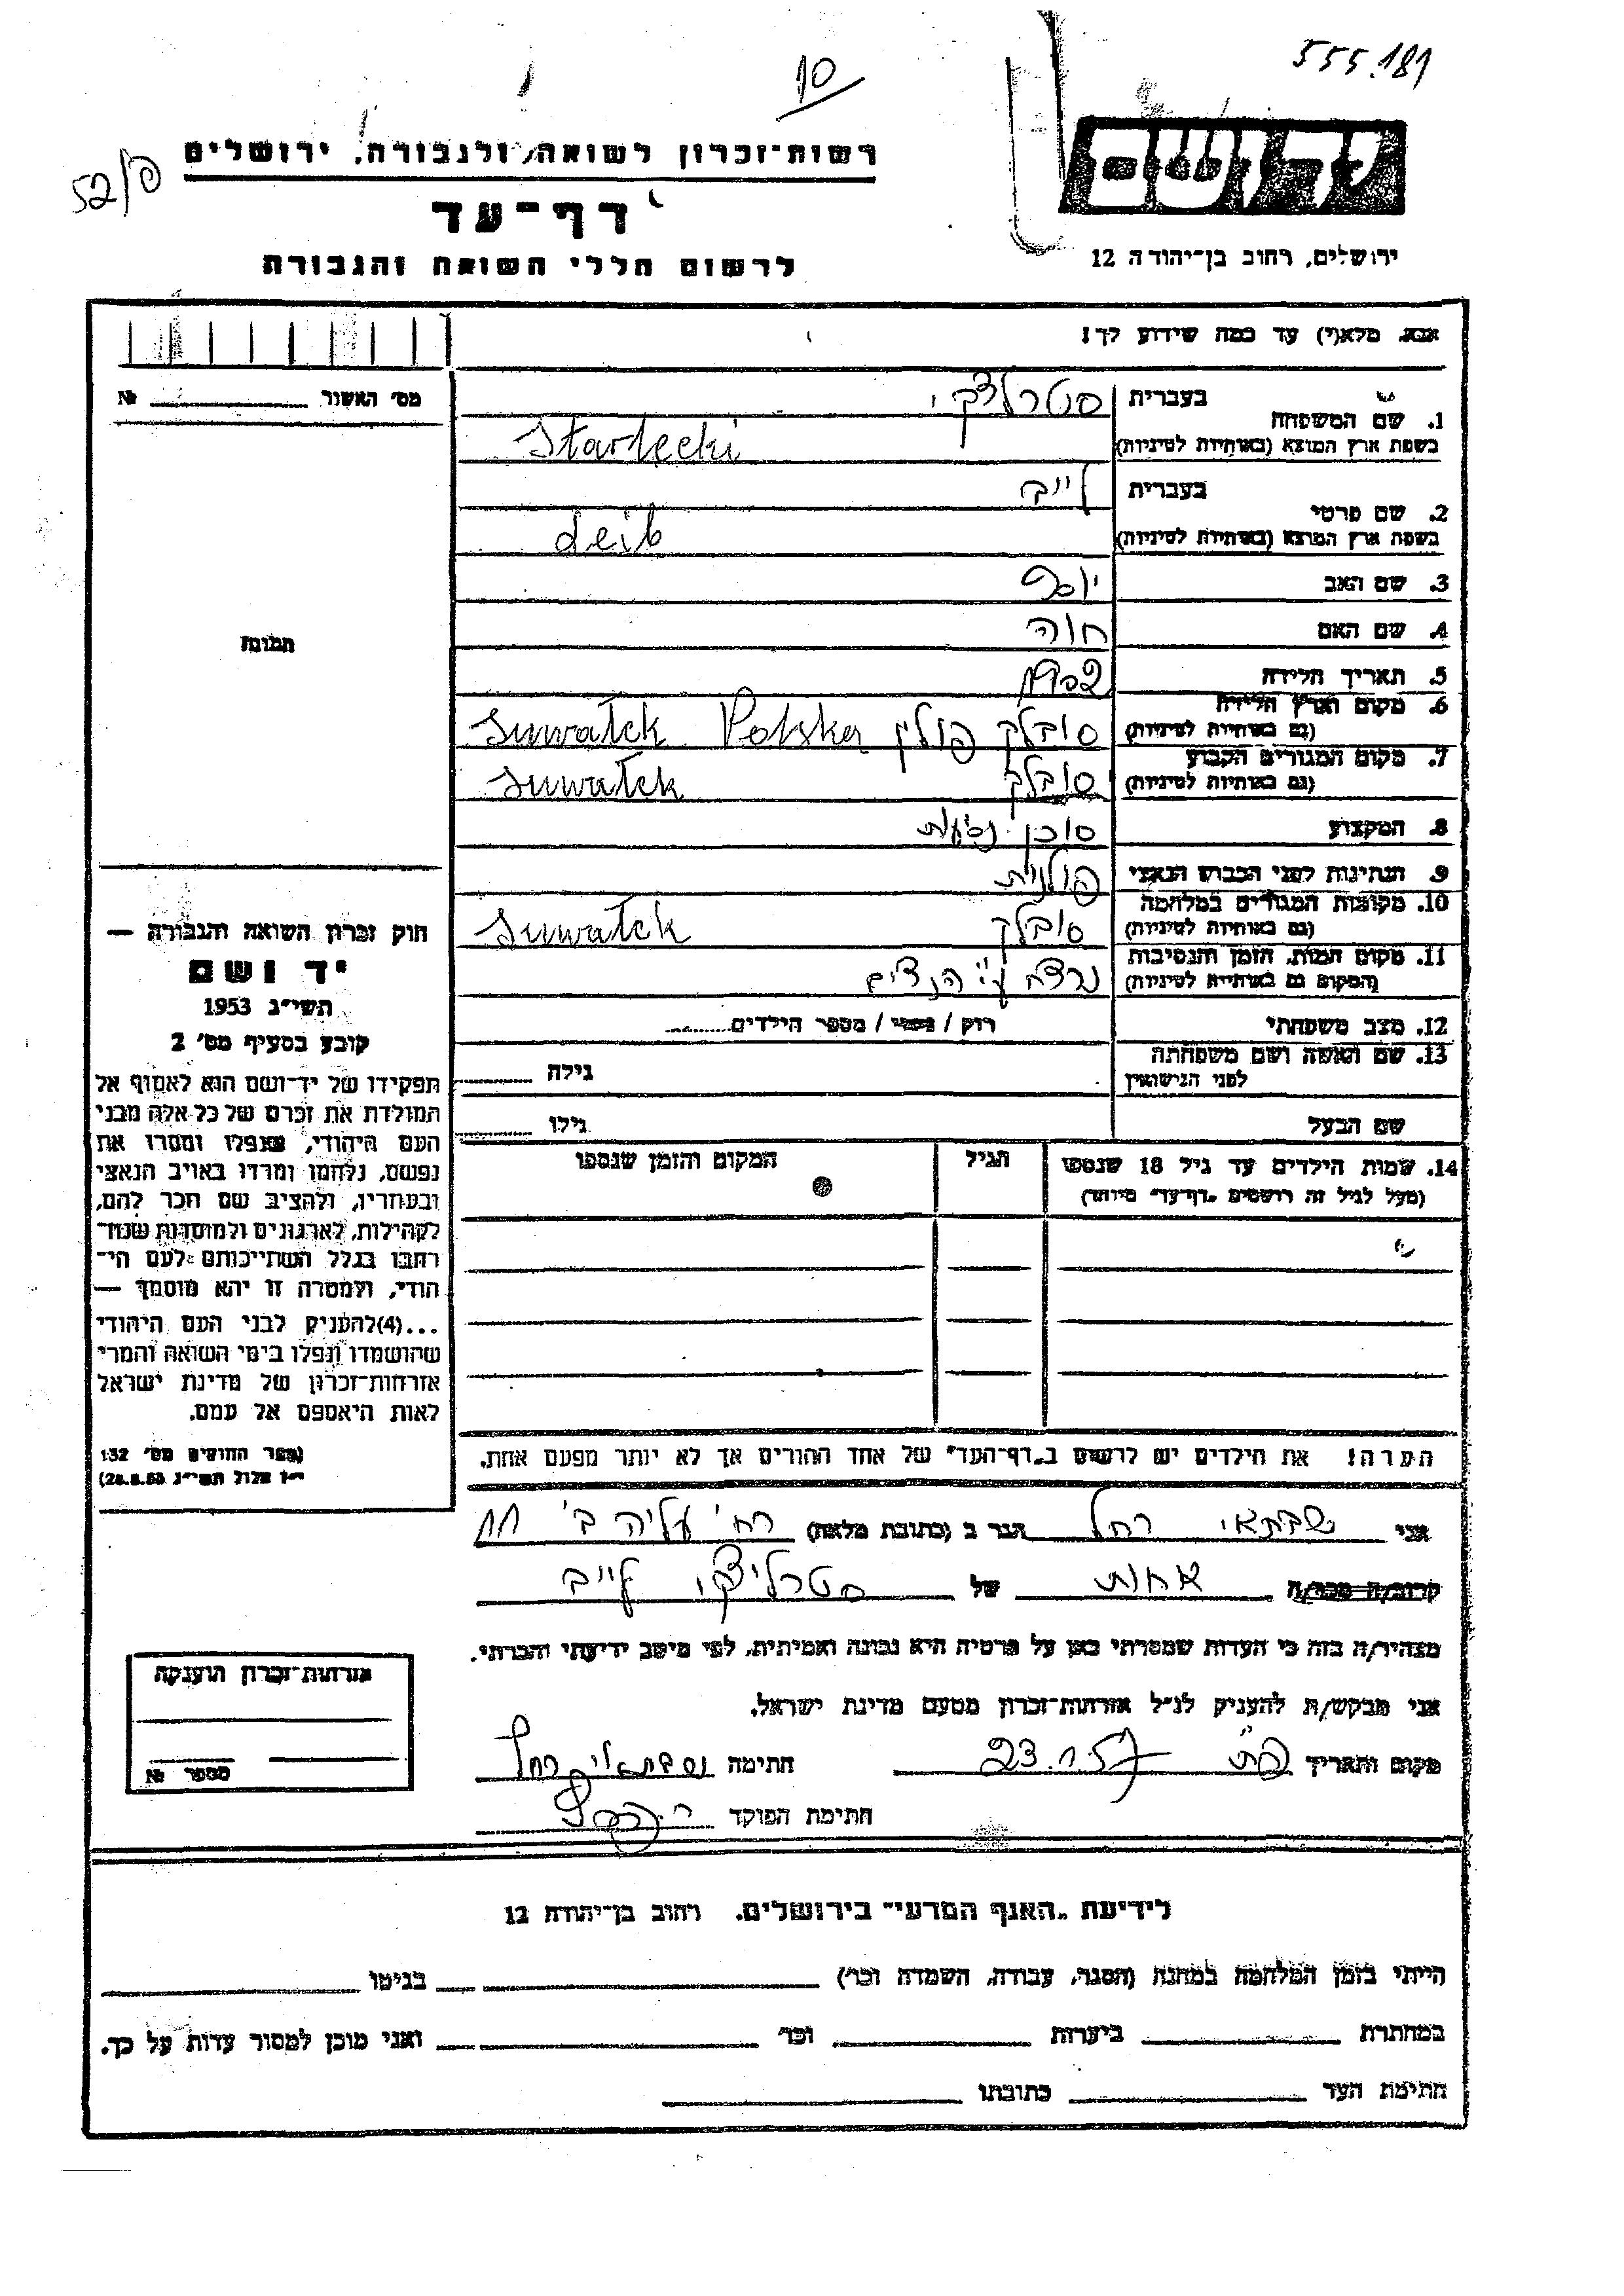 555.181
10
52/פ
יד ושם
רשות־זכרון לשואה ולגבורה, ירושלים
דף־עד
לרשום חללי השואה והגבורה
ירושלים, רחוב בן־יהודה 12
אנא, מלא(י) עד כמה שידוע לך!
מס' האשור №
1. שם המשפחה
בעברית סטרלצקי
בשפת ארץ המוצא (באותיות לטיניות) Starlecki
2. שם פרטי
בעברית לייב
בשפת ארץ המוצא (באותיות לטיניות) Leib
3. שם האב יוסף
4. שם האם חוה
5. תאריך הלידה 1902
6. מקום וארץ הלידה
(גם באותיות לטיניות) סובלק פולין Suwałek Polska
7. מקום המגורים הקבוע
(גם באותיות לטיניות) סובלק Suwałek
8. המקצוע סוכן נסיעות
9. הנתינות לפני הכבוש הנאצי פולנית
10. מקומות המגורים במלחמה
(גם באותיות לטיניות) סובלק Suwałek
11. מקום המות, הזמן והנסיבות
(המקום גם באותיות לטיניות) נרצח ע"י הנאצים
12. מצב משפחתי רווק / נשוי / מספר הילדים
13. שם האשה ושם משפחתה
לפני הנישואין גילה
שם הבעל גילו
14. שמות הילדים עד גיל 18 שנספו
(מעל לגיל זה רושמים „דף־עד" מיוחד)
הגיל
המקום והזמן שנספו
הערה! את הילדים יש לרשום ב„דף־העד" של אחד ההורים אך לא יותר מפעם אחת.
תמונה
חוק זכרון השואה והגבורה —
יד ושם
תשי"ג 1953
קובע בסעיף מס' 2
תפקידו של יד־ושם הוא לאסוף אל
המולדת את זכרם של כל אלה מבני
העם היהודי, שנפלו ומסרו את
נפשם, נלחמו ומרדו באויב הנאצי
ובעוזריו, ולהציב שם וזכר להם,
לקהילות, לארגונים ולמוסדות שנח־
רבו בגלל השתייכותם לעם הי־
הודי, ולמטרה זו יהא מוסמך —
...(4)להעניק לבני העם היהודי
שהושמדו ונפלו בימי השואה והמרי
אזרחות־זכרון של מדינת ישראל
לאות היאספם אל עמם.
(ספר החוקים מס' 132
י"ז אלול תשי"ג 28.8.53)
אני שבתאי רחל הגר ב (כתובת מלאה) רח' עליה ב' 11
קרוב/ה מכר/ה אחות של סטרליצקי לייב
מצהיר/ה בזה כי העדות שמסרתי כאן על פרטיה היא נכונה ואמיתית, לפי מיטב ידיעתי והכרתי.
אני מבקש/ת להעניק לנ"ל אזרחות־זכרון מטעם מדינת ישראל.
מקום ותאריך 23.1.57 חתימה שבתאי רחל
חתימת הפוקד
אזרחות־זכרון הוענקה
מספר №
לידיעת „האגף המדעי" בירושלים. רחוב בן־יהודה 12
הייתי בזמן המלחמה במחנה (הסגר, עבודה, השמדה וכו') בגיטו
במחתרת ביערות וכו' ואני מוכן למסור עדות על כך.
חתימת העד כתובתו